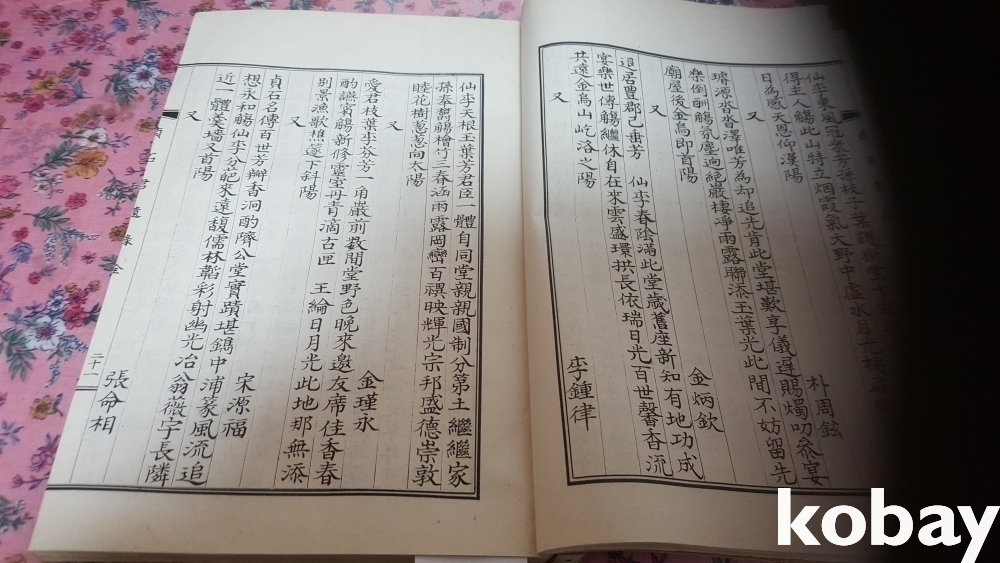 仙李東風冠衆芳孫枝子葉護
得主人觴此山特立烟霞氣大野中虛水月光
日為感天恩仰漢陽
又
朴周鉉
璿源沓沓澤唯芳為却追先肯此堂堪歎享儀遅賜燭叨叅宴
樂倒酬觴氛塵逈絕嚴棲凈雨露聯添玉葉光此間不妨留先
廟屋後金烏即首陽
又
金炳欽
退居豊郡已亩芳 仙李春陰滿此堂歲舊座新知有地功成
宴樂世傳觴繼休自在來雲盛環拱長依瑞日光百世馨香流
共遠金烏山屹洛之陽
又
李鍾律
仙李天根玉葉芳君臣一體自同堂親親國制分第土繼繼家
孫奉鬱觴檜竹三春涵雨露岡巒百襈映輝光宗邦盛德崇敦
睦花樹蔥蔥向太陽
又
金瑾永
愛君枝葉李分芳一角巖前数間堂野色晚來邀友席佳香春
酌讌賓觴新修靈室丹青滴古匣 王綸日月光此地那無添
别景漁歌樵篴下斜陽
又
宋源福
貞石名傳百世芳瓣香洞酌隮公堂實蹟堪鐫中浦篆風流追
想永和觴仙李分葩來遠馥儒林韜彩射幽光冶翁薇宇長隣
近一體羹墻又首陽
又
張命相
貞石 全
二十一
kobay